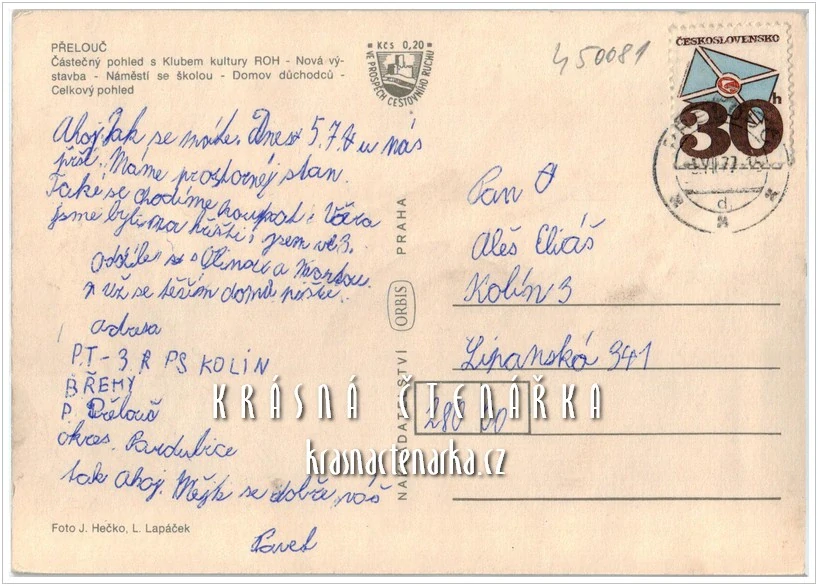 PŘELOUČ
Částečný pohled s Klubem kultury ROH - Nová vý-
stavba - Náměstí se školou - Domov důchodců -
Celkový pohled
Kčs 0,20
VE PROSPĚCH CESTOVNÍHO RUCHU
450081
ČESKOSLOVENSKO
30h
Ahoj. Jak se máte. Dnes 5.7. u nás
prší. Máme prostornej stan.
Také se chodíme koupat. Včera
jsme byli na hřišti, jsem ve 3.
oddíle
a už se těším domů pište.
adresa
PT-3 A PS KOLÍN
BŘEHY
P. Přelouč
okres. Pardubice
tak ahoj. Mějte se dobře váš
Pavel
Foto J. Hečko, L. Lapáček
NAKLADATELSTVÍ ORBIS PRAHA
Pan
Aleš Eliáš
Kolín 3
Lipanská 341
280 00
KRÁSNÁ ČTENÁŘKA
krasnactenarka.cz